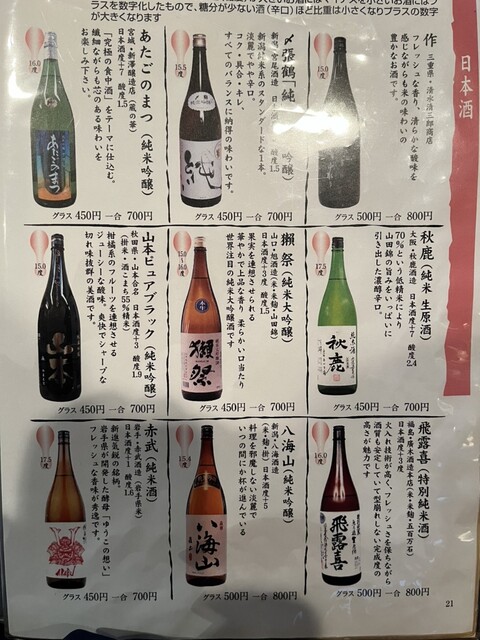 を数字化したもので、糖分が少ない酒（辛口）ほど比重は小さくなりプラスの数字
が大きくなります
日本酒
作 三重県・清水清三郎商店
フレッシュな香り、清らかな酸味を
感じながらも米の
豊かなお酒です。
15.0度
グラス 500円 一合 800円
〆張鶴「純」
吟醸）
新潟・宮尾酒造
酸度1.5
新潟淡麗系のスタンダードな1本。
淡麗でやや辛口。
コク・具合・キレ、
すべてのバランスに納得の味わいです。
15.5度
グラス 450円 一合 700円
あたごのまつ（純米吟醸）
宮城・新澤醸造店（蔵の華）
日本酒度+7 酸度1.5
「究極の食中酒」をテーマに仕込む。
繊細ながらも芯のある味わいを
お楽しみ下さい。
16.0度
グラス 450円 一合 700円
秋鹿（純米 生原酒）
大阪・秋鹿酒造 日本酒度+7 酸度2.4
70％という低精米により
山田錦の旨みをいっぱいに
引き出した濃醇辛口。
17.5度
グラス 450円 一合 700円
獺祭（純米大吟醸）
山口・旭酒造（米・米麹・山田錦）
日本酒度+3度 酸度1.5
果実を連想させられる
華やかで上品な香り 柔らかい口当たり
世界注目の純米大吟醸酒です。
15.0〜16.0度
グラス 450円 一合 700円
山本ピュアブラック（純米吟醸）
秋田県・山本合名 日本酒度+3 酸度1.9
（掛米・酒こまち55％精米）
柑橘系のフルーツを連想させる
ジューシーな酸味。爽快でシャープな
切れ味抜群の美酒です。
15.0度
グラス 450円 一合 700円
飛露喜（特別純米酒）
福島・廣木酒造本店（米・米麹・五百万石）
日本酒度+3度
火入れ技術が高く、フレッシュさを保ちながら
酒質も安定していて型崩れしない完成度の
高さが魅力です
16.0度
グラス 500円 一合 800円
八海山（純米吟醸）
新潟・八海酒造
（米・麹・掛）日本酒度+5
料理を邪魔しない淡麗で
いつの間にか杯が進んでいる
15.4度
グラス 500円 一合 800円
赤武（純米酒）
岩手・赤武酒造（岩手県米）
日本酒度+1 酸度1.6
新進気鋭の銘柄。
岩手県が開発した酵母「ゆうこの想い」
フレッシュな香味が秀逸です。
17.5度
グラス 450円 一合 700円
21